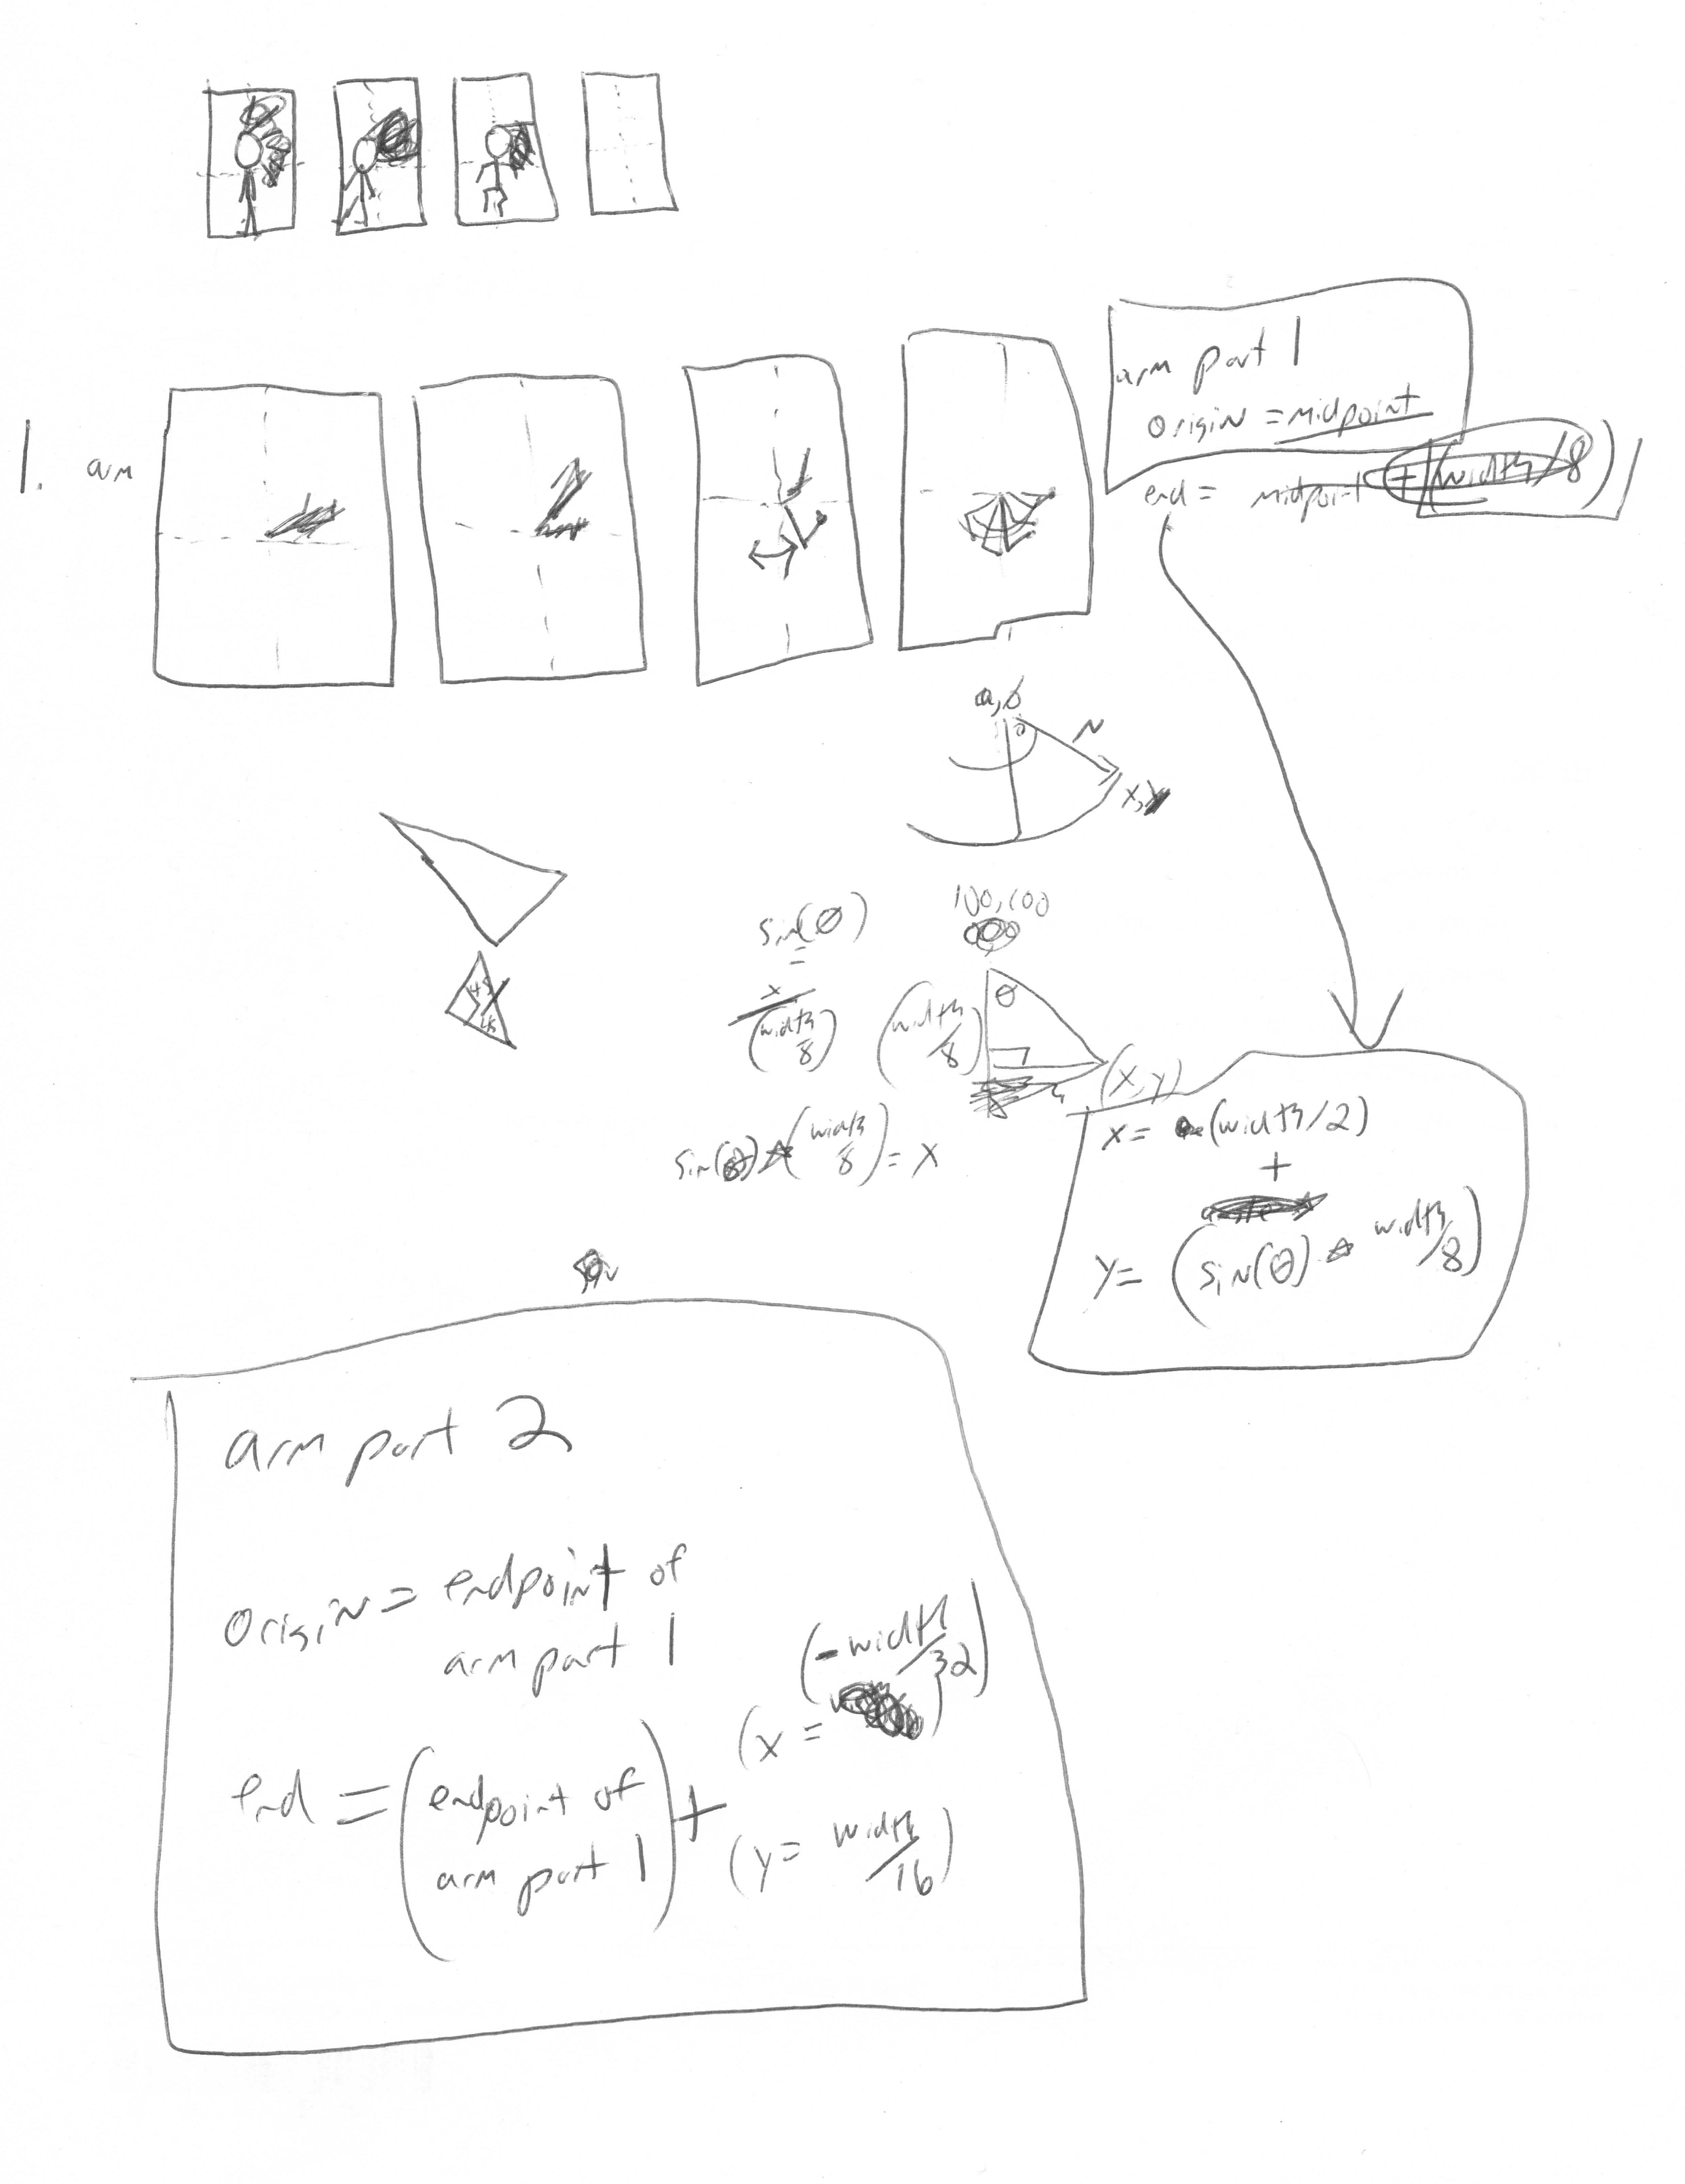 1. arm
arm part 1
origin = midpoint
end = midpoint + (width/8)
θ
N
x, y
sin(θ)
=
x
(width/8)
100,100
(width/8)
θ
(x, y)
45
45
sin(θ) * (width/8) = x
x = (width/2)
+
y = (sin(θ) * width/8)
arm part 2
origin = endpoint of
arm part 1
end = (endpoint of
arm part 1) +
(x = (-width/32))
(y = width/16)